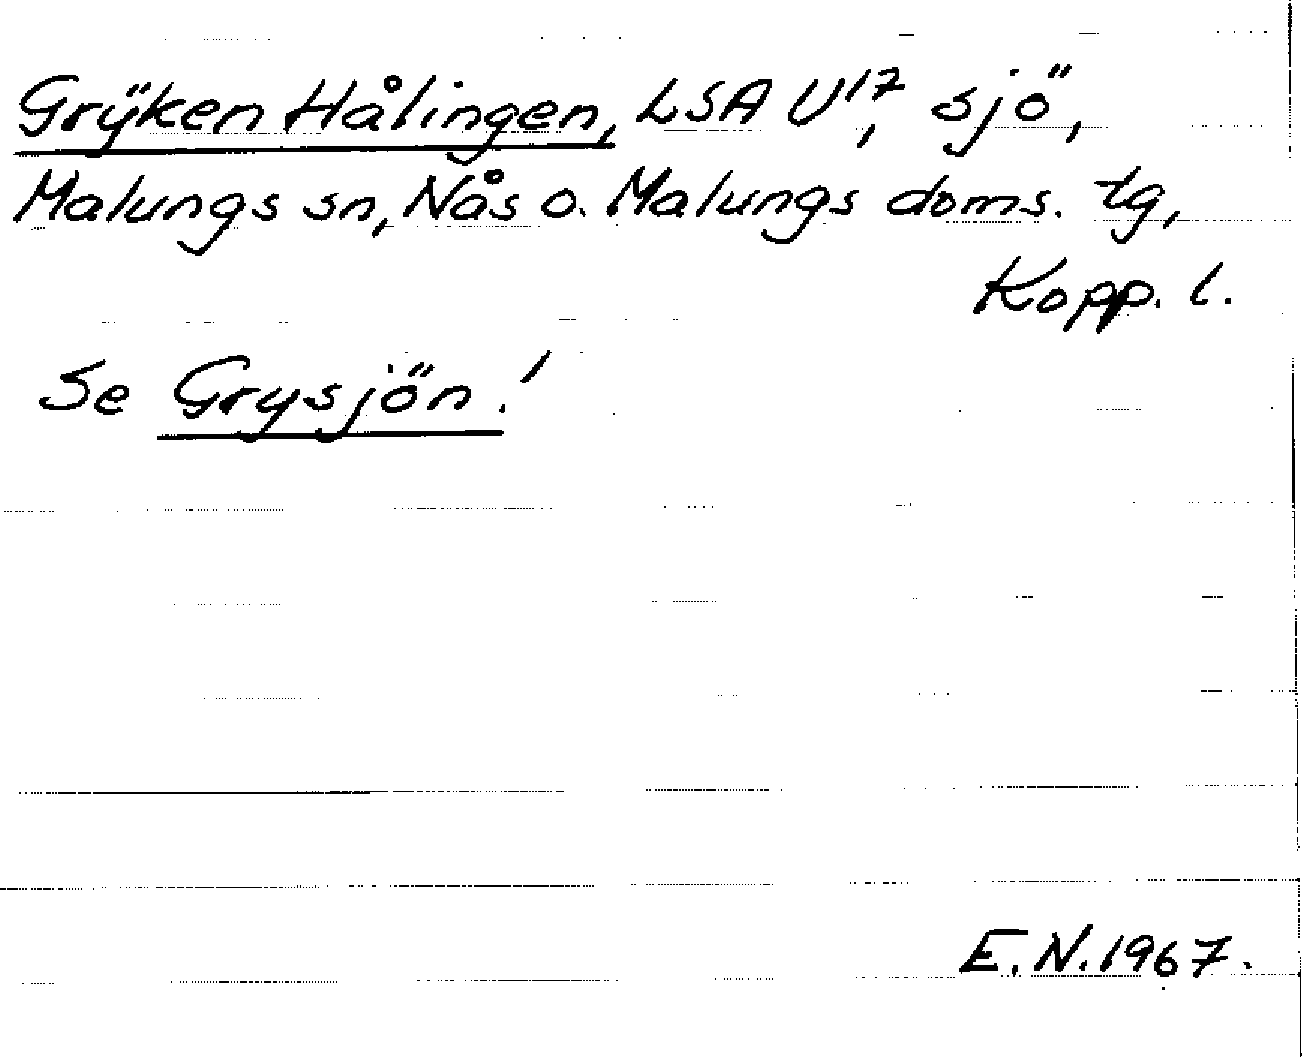 Grÿken Hålingen, LSA U¹⁷, sjö,
Malungs sn, Nås o. Malungs doms. tg,
Kopp. l.
Se Grysjön!
E.N. 1967.